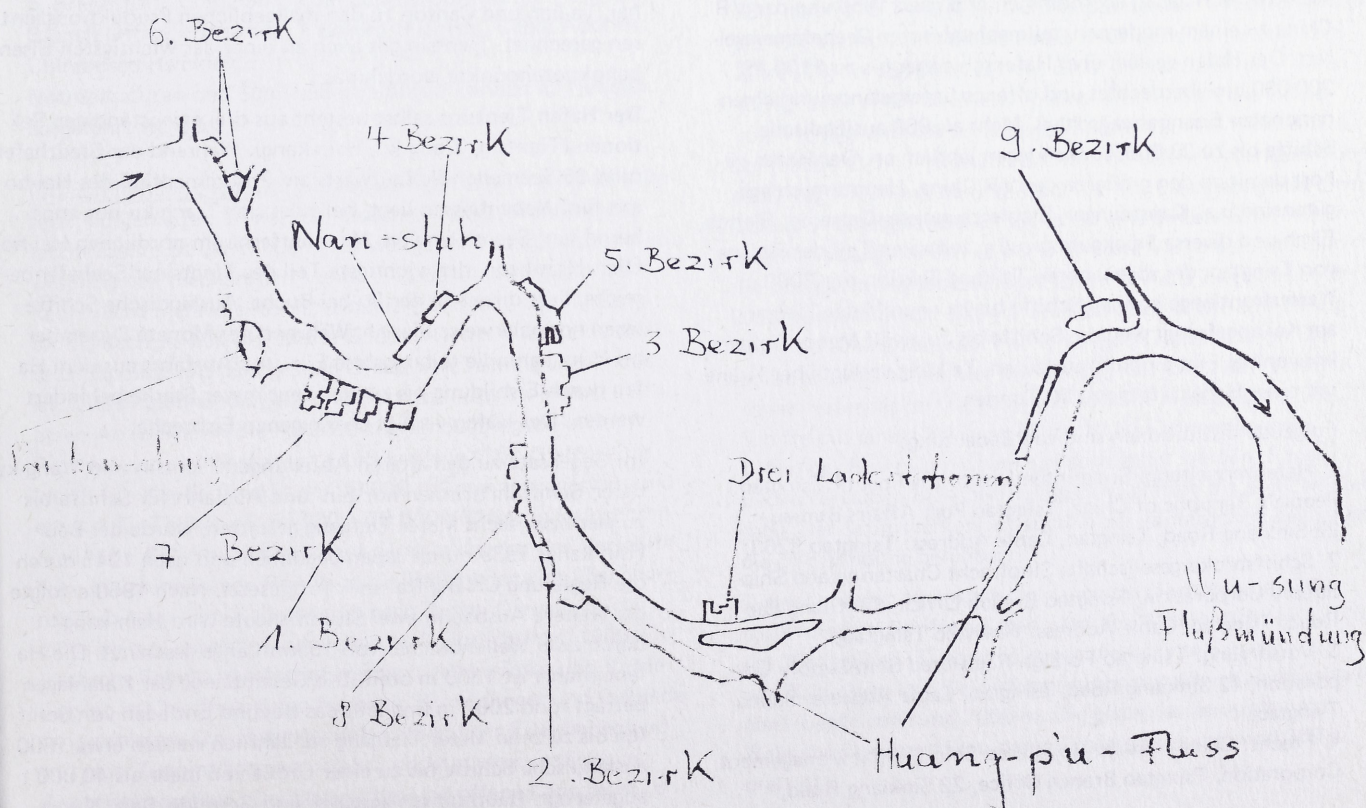 6. Bezirk
4. Bezirk
9. Bezirk
Nan-shih
5. Bezirk
3 Bezirk
Drei
7. Bezirk
1 Bezirk
8 Bezirk
2 Bezirk
Wu-sung
Flußmündung
Huang-p'u-Fluss